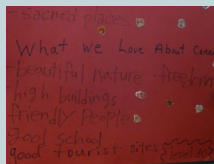 -sacred places
What we Love About
-beautiful nature -freedom
-high buildings
friendly People
good school
good tourist sites